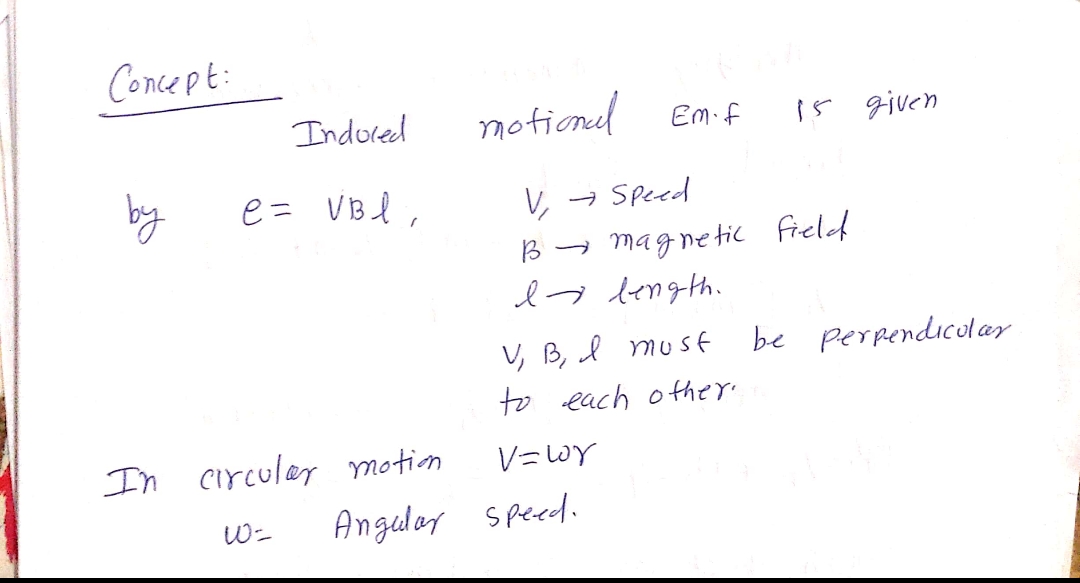 Concept:
Induced motional Em.f is given
by e = VBl, V, → Speed
B → magnetic field
l → length.
V, B, l must be perpendicular
to each other.
In circular motion V=ωr
ω= Angular speed.